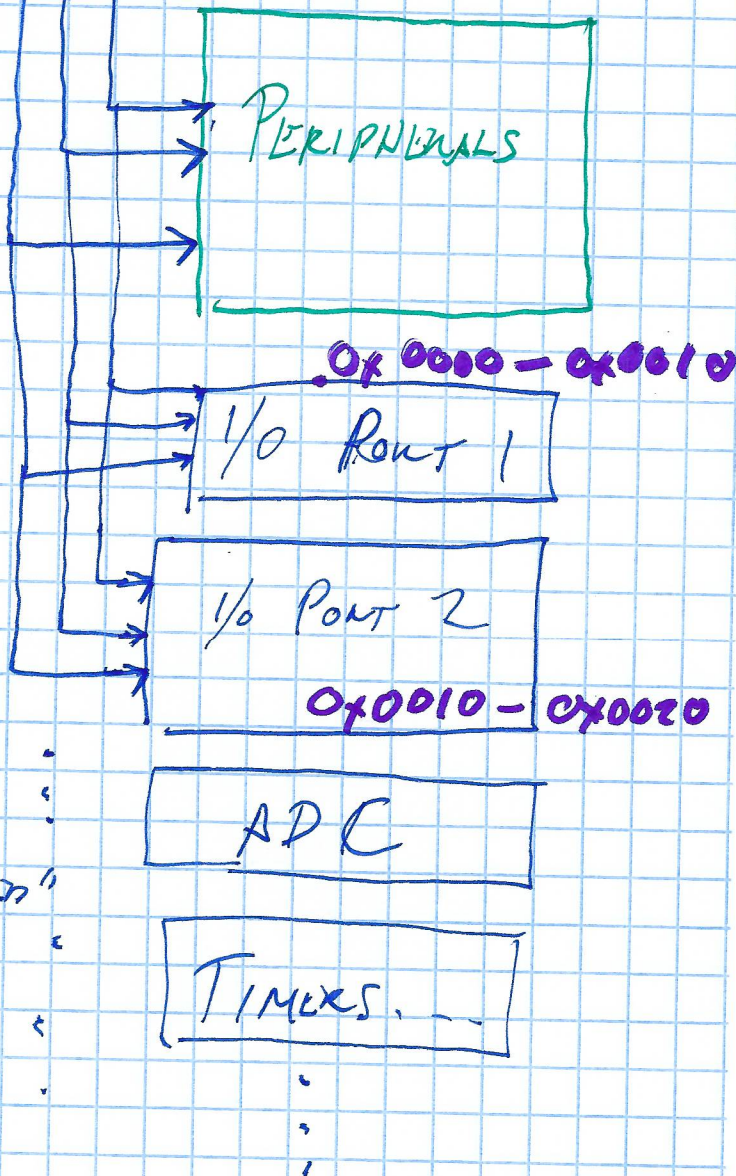 PERIPHERALS
0x0000 - 0x0010
I/O PORT 1
I/O PORT 2
0x0010 - 0x0020
ADC
TIMERS...